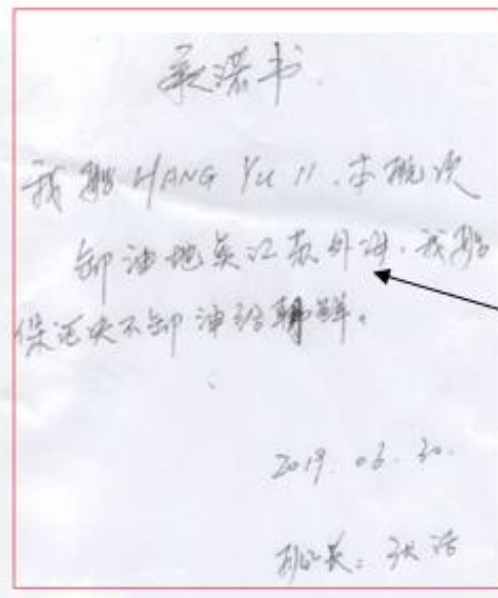 承诺书.
我船 HANG YU 11. 本航次
卸油地点江苏外海. 我船
保证决不卸油给朝鲜.
2019. 06. 30.
船长: 张